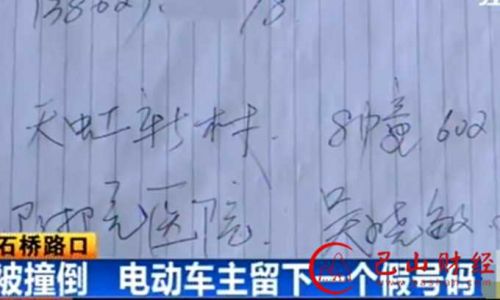 天虹新村. 8幢602
医院. 吴晓敏
石桥路口
被撞倒 电动车主留下一个假号码
巴山财经